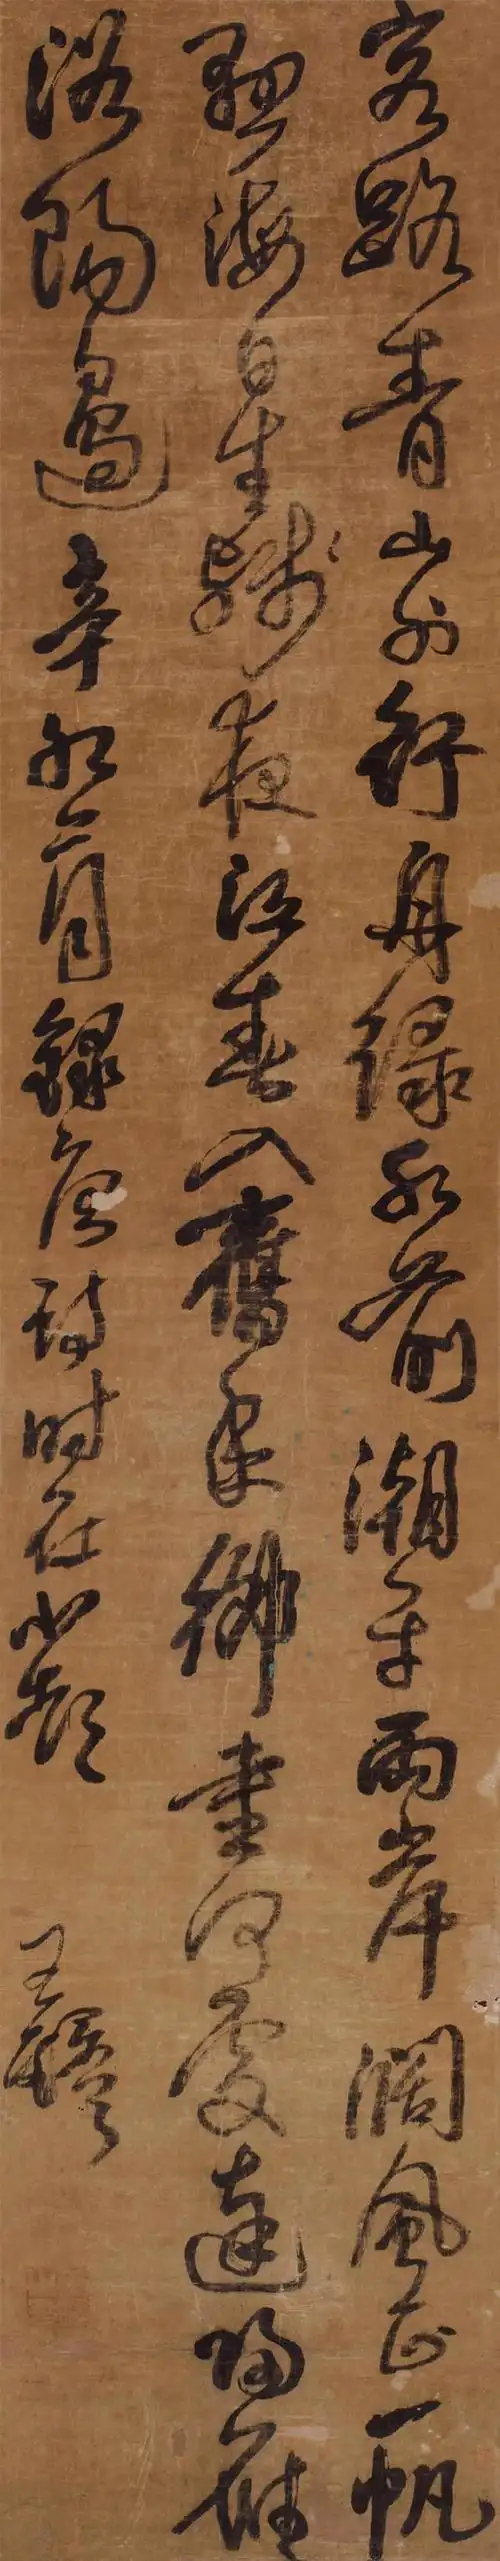 客路青山外行舟綠水前潮平兩岸濶風正一帆
懸海日生殘夜江春入舊年鄉書何處達歸雁
洛陽邊辛卯月錄唐詩時在小 王鐸